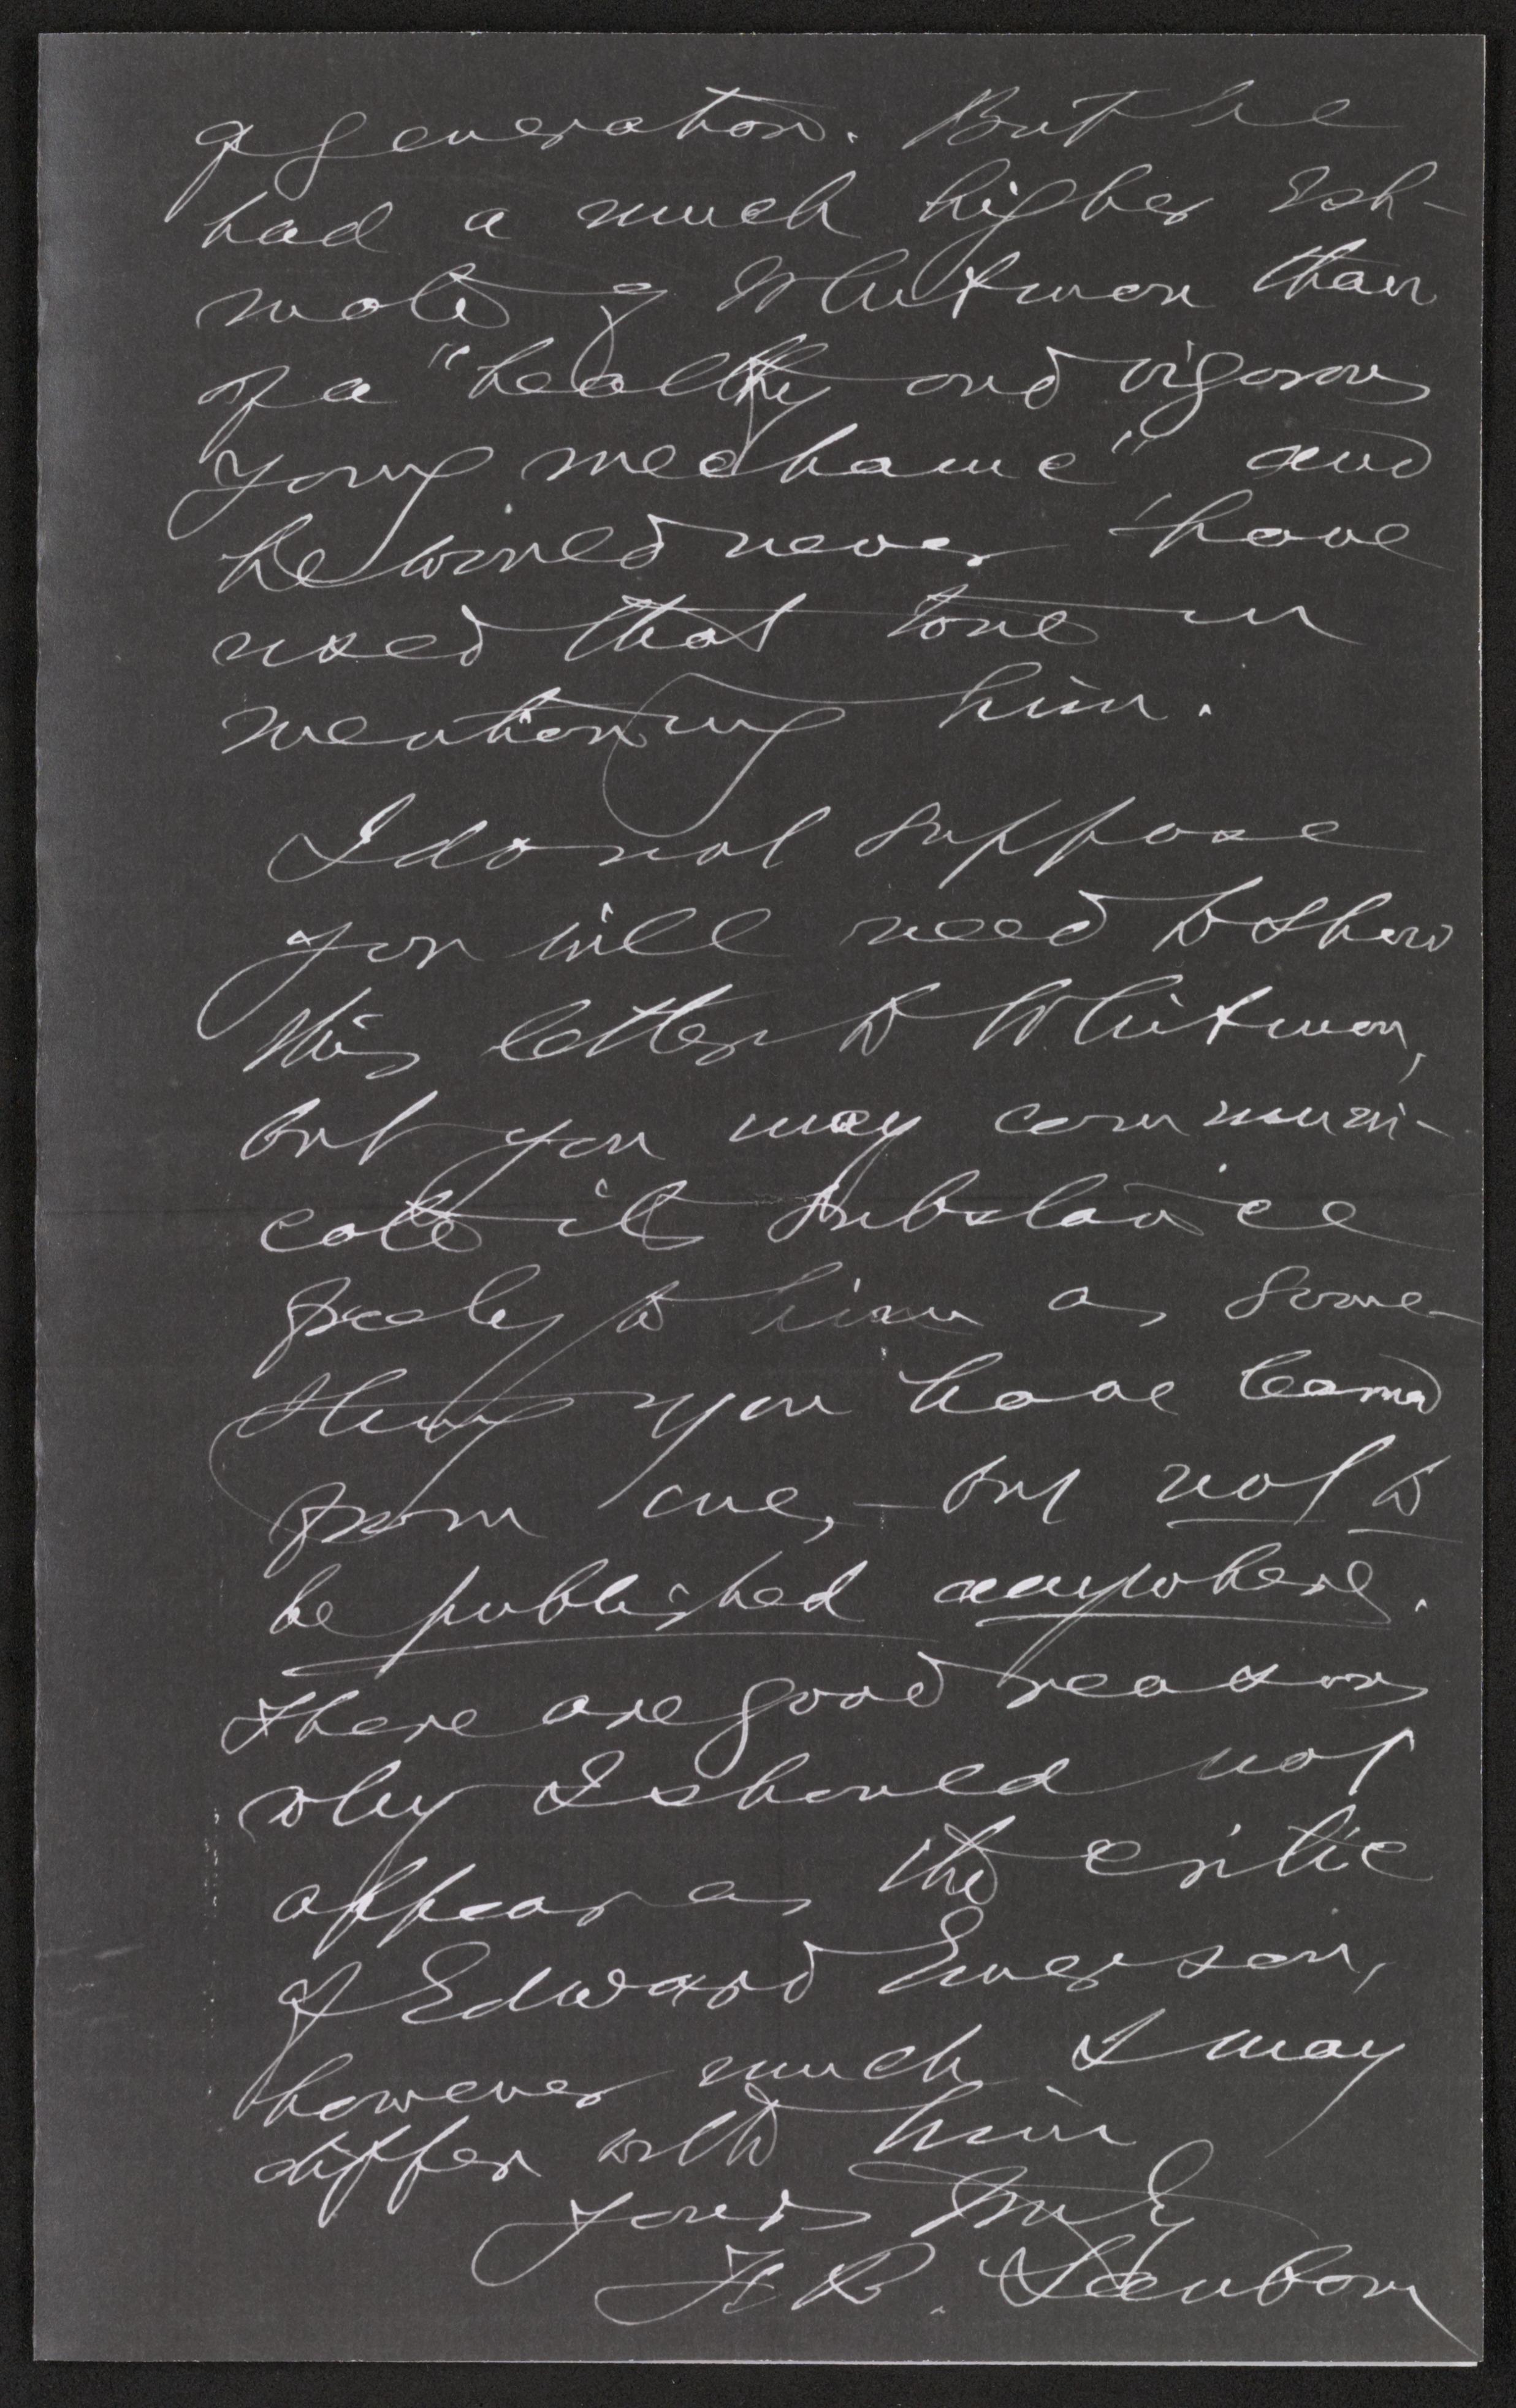 of generation. But he
had a much higher Esti-
mate of Whitman than
of a "healthy and vigorous
young mechanic" and
he would never have
used that tone in
mentioning him.
I do not suppose
you will need to show
this letter to Whitman,
but you may communi-
cate its substance
freely to him as some-
thing you have learned
from me, – but not to
be published anywhere.
There are good reasons
why I should not
appear as the critic
of Edward Emerson,
however much I may
differ with him
Yours truly
F. B. Sanborn